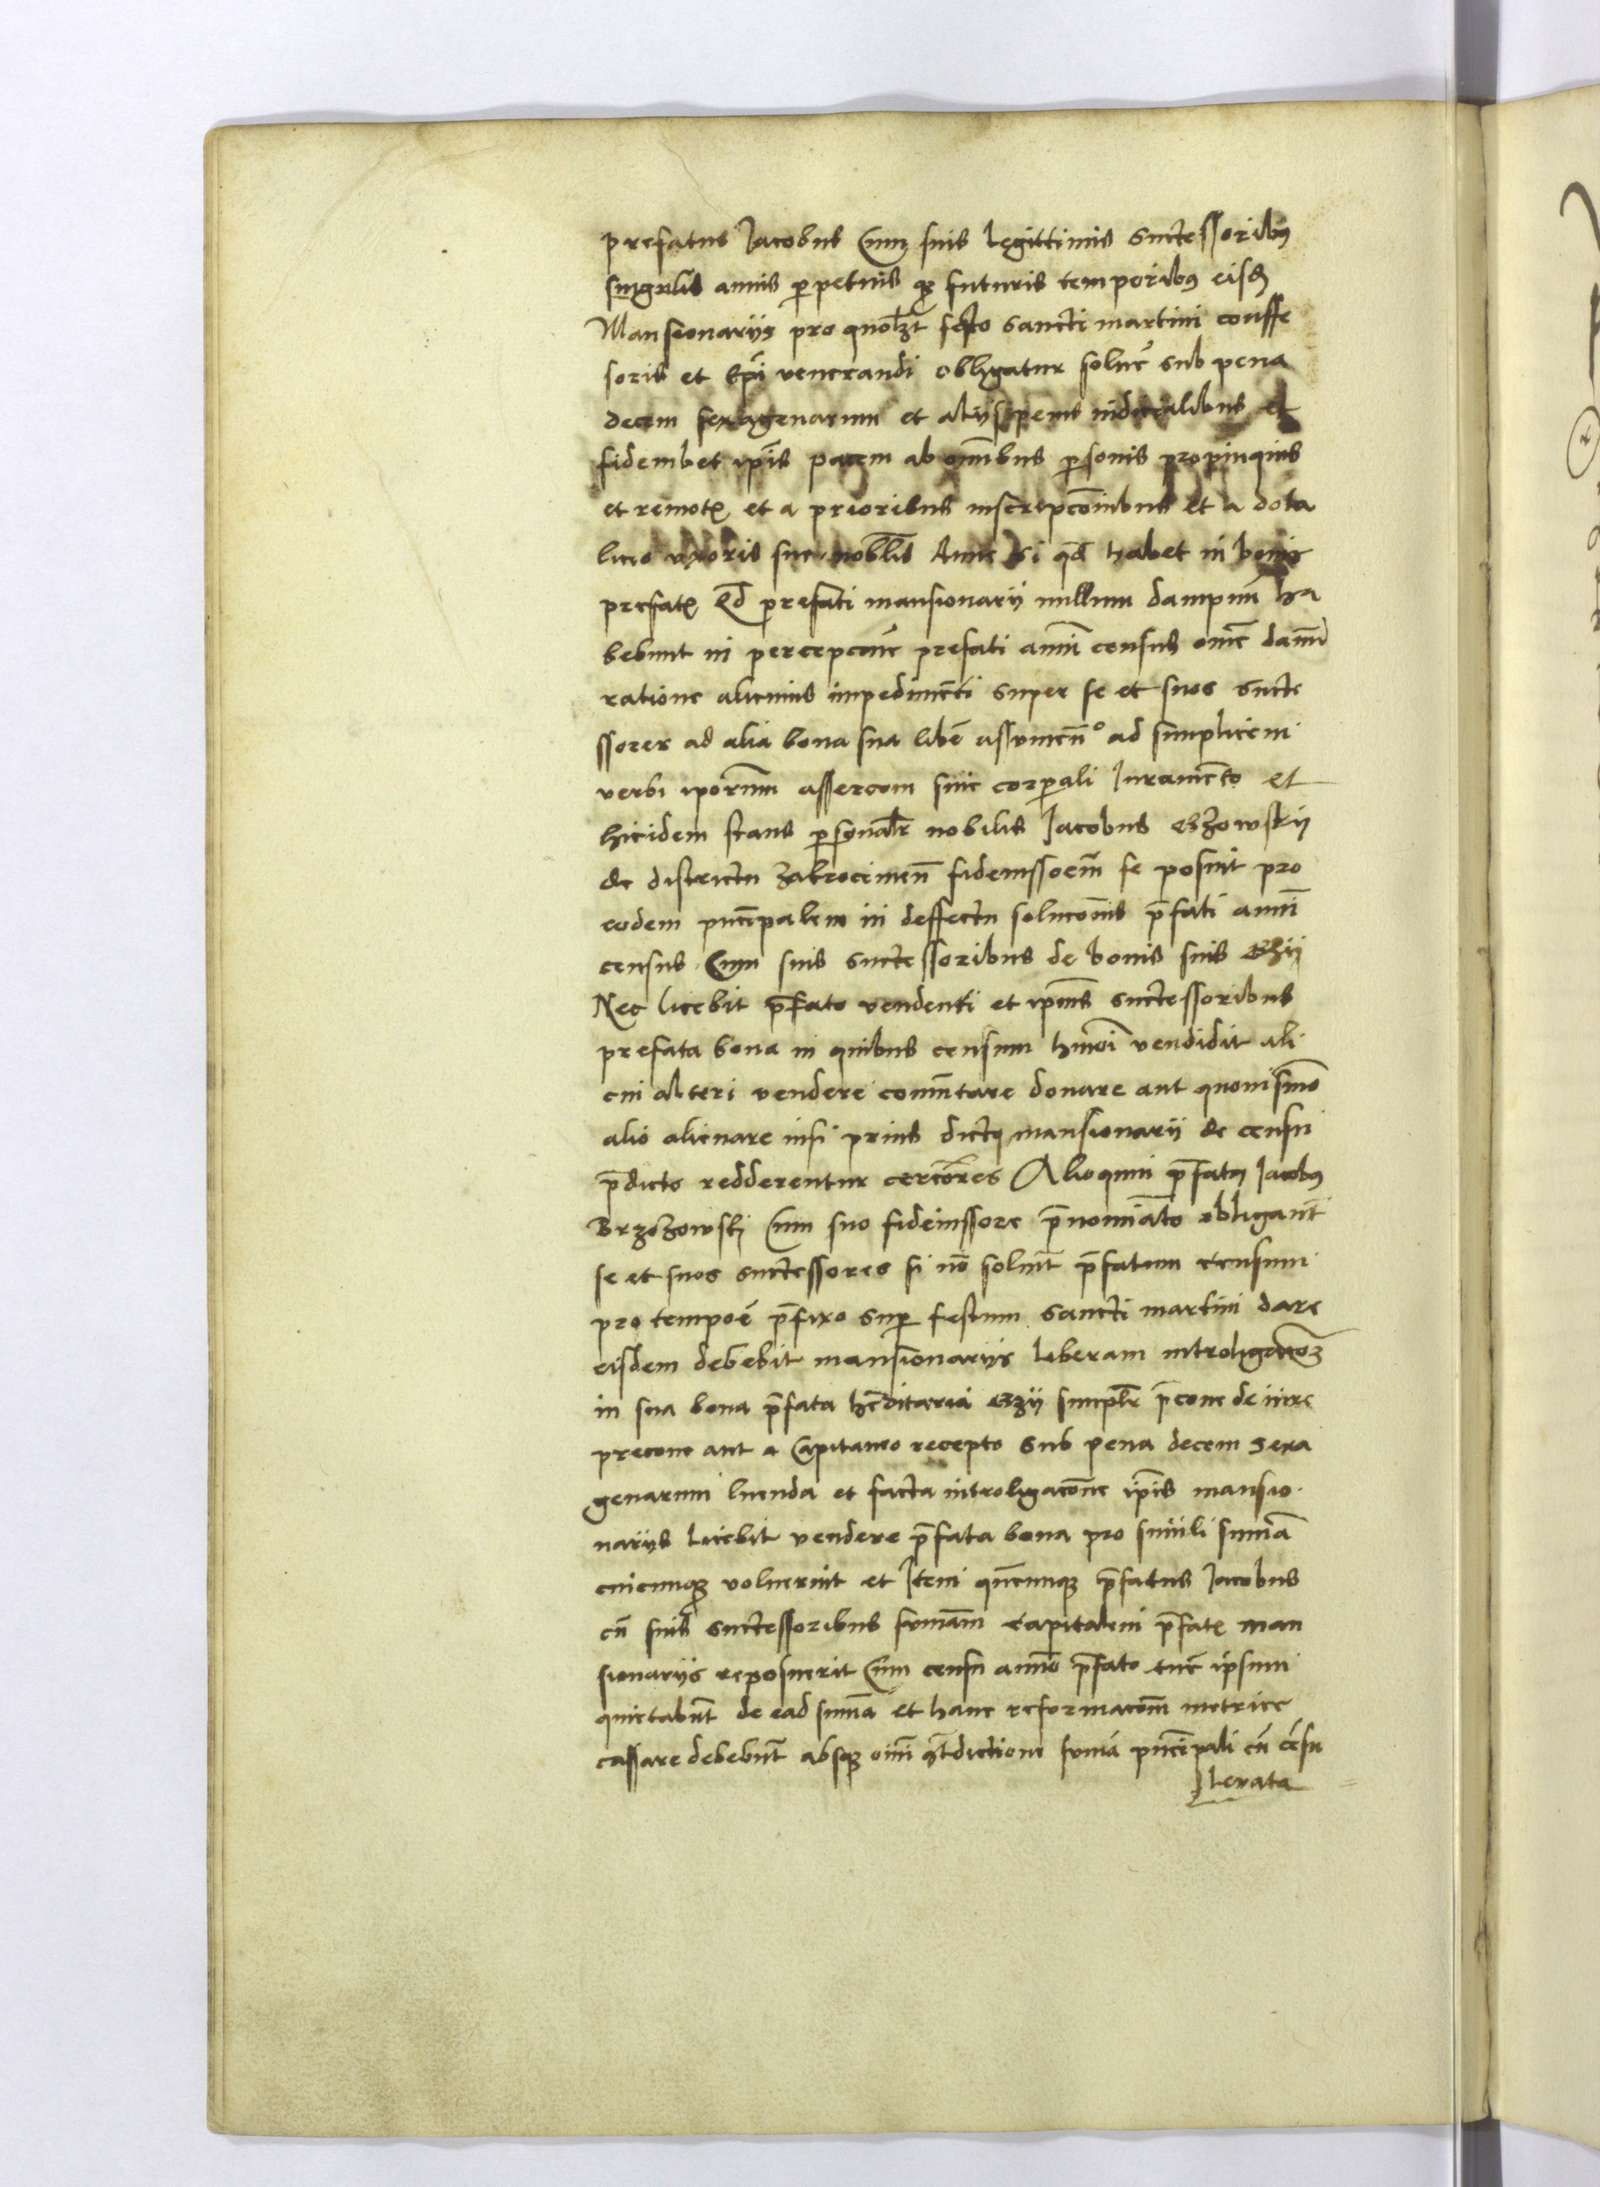 prefatus Jacobus Cum suis legittimis Successoribus
singulis annis perpetuis q3 futuris temporibus eisd
Mansionariis pro quolzt festo Sancti martini confe
soris et Epi venerandi obligatur soluere sub pena
decem sexagenarum et aliis penis iudicialibus et
fidembet ipis pacem ab omnibus personis propinquis
et remotis et a prioribus inscripconibus et a dota
licio vxoris sue nobilis Anne si qd habet in bonis
prefatis Qd prefati mansionarii nullum dampnu ha
bebunt in percepcone prefati annui census omne damnu
ratione alicuius impedimenti super se et suos Succe
ssores ad alia bona sua libere assumen ad simplicem
verbi iporum assercom sine corporali Juramento et
hicidem stans personalr nobilis Jacobus
de districtu zakrocimen fideiussorem se posuit pro
eodem pncipalem in deffectu soluconis pfati annui
census Cum suis Successoribus de bonis suis
Nec licebit pfato vendenti et ipius Successoribus
prefata bona in quibus censum hmoi vendidit ali
cui alteri vendere comutare donare aut quouismo
alio alienare nisi prius dicti mansionarii de censu
pdicto redderentur cerciores Alioquin pfatus Jacobus
Brzozowski Cum suo fideiussore pnominato obligant
se et suos successores si no soluint pfatum censum
pro tempore pfixo super festum Sancti martini dare
eisdem debebit mansionariis liberam introligacoem
in sua bona pfata hereditaria simplr pcone de iure
precone aut a Capitaneo recepto Sub pena decem sexa
genarum luenda et facta introligacone ipis mansio
nariis licebit vendere pfata bona pro simili suma
cuicunq3 voluerint et Item qncunq3 pfatus Jacobus
cu suis successoribus sumam capitalem pfatis man
sionariis reposuerit Cum censu annuo pfato tunc ipsum
quietabunt de ead suma et hanc reformacom metrice
cassare debebunt absq3 omi contradictione suma pncipali cu censu
leuata